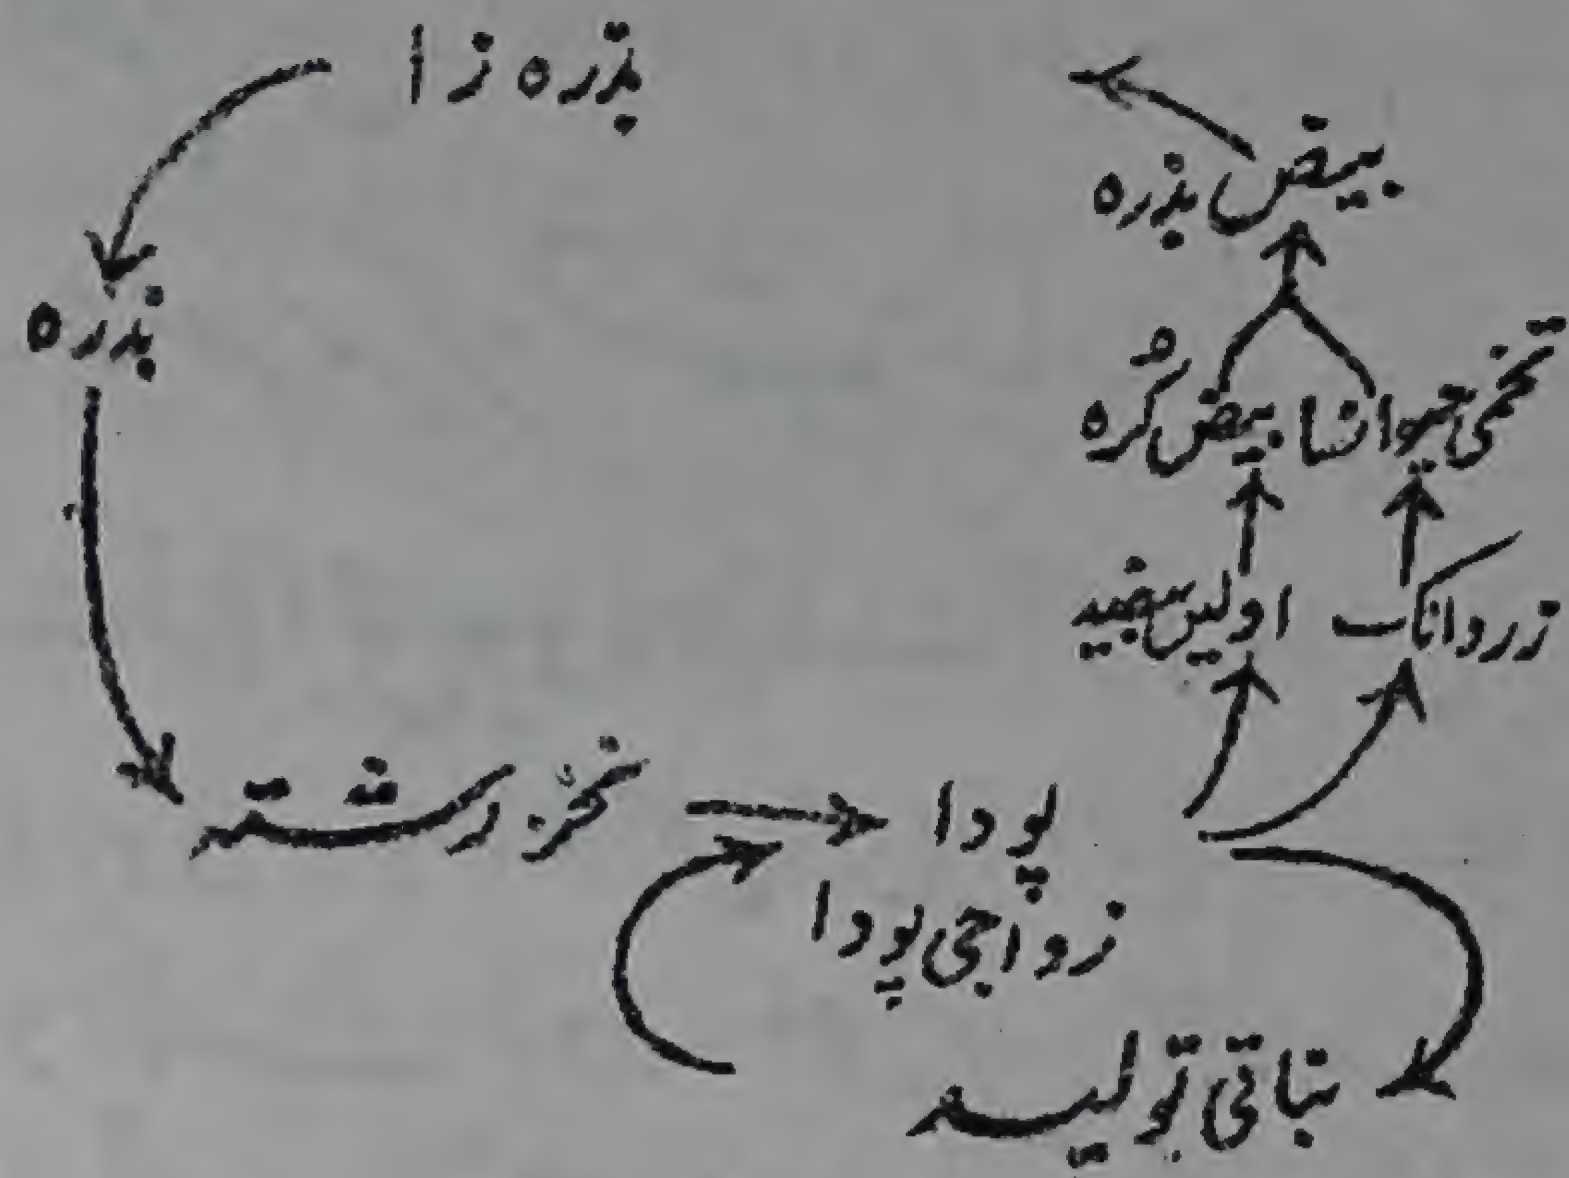 بذرہ زا
بیض بذرہ
بذرہ
تخمی حیوانسا بیض کُرہ
زردانک اولیں سفید
نخز رشتہ
پودا
زواجی پودا
نباتی تولید